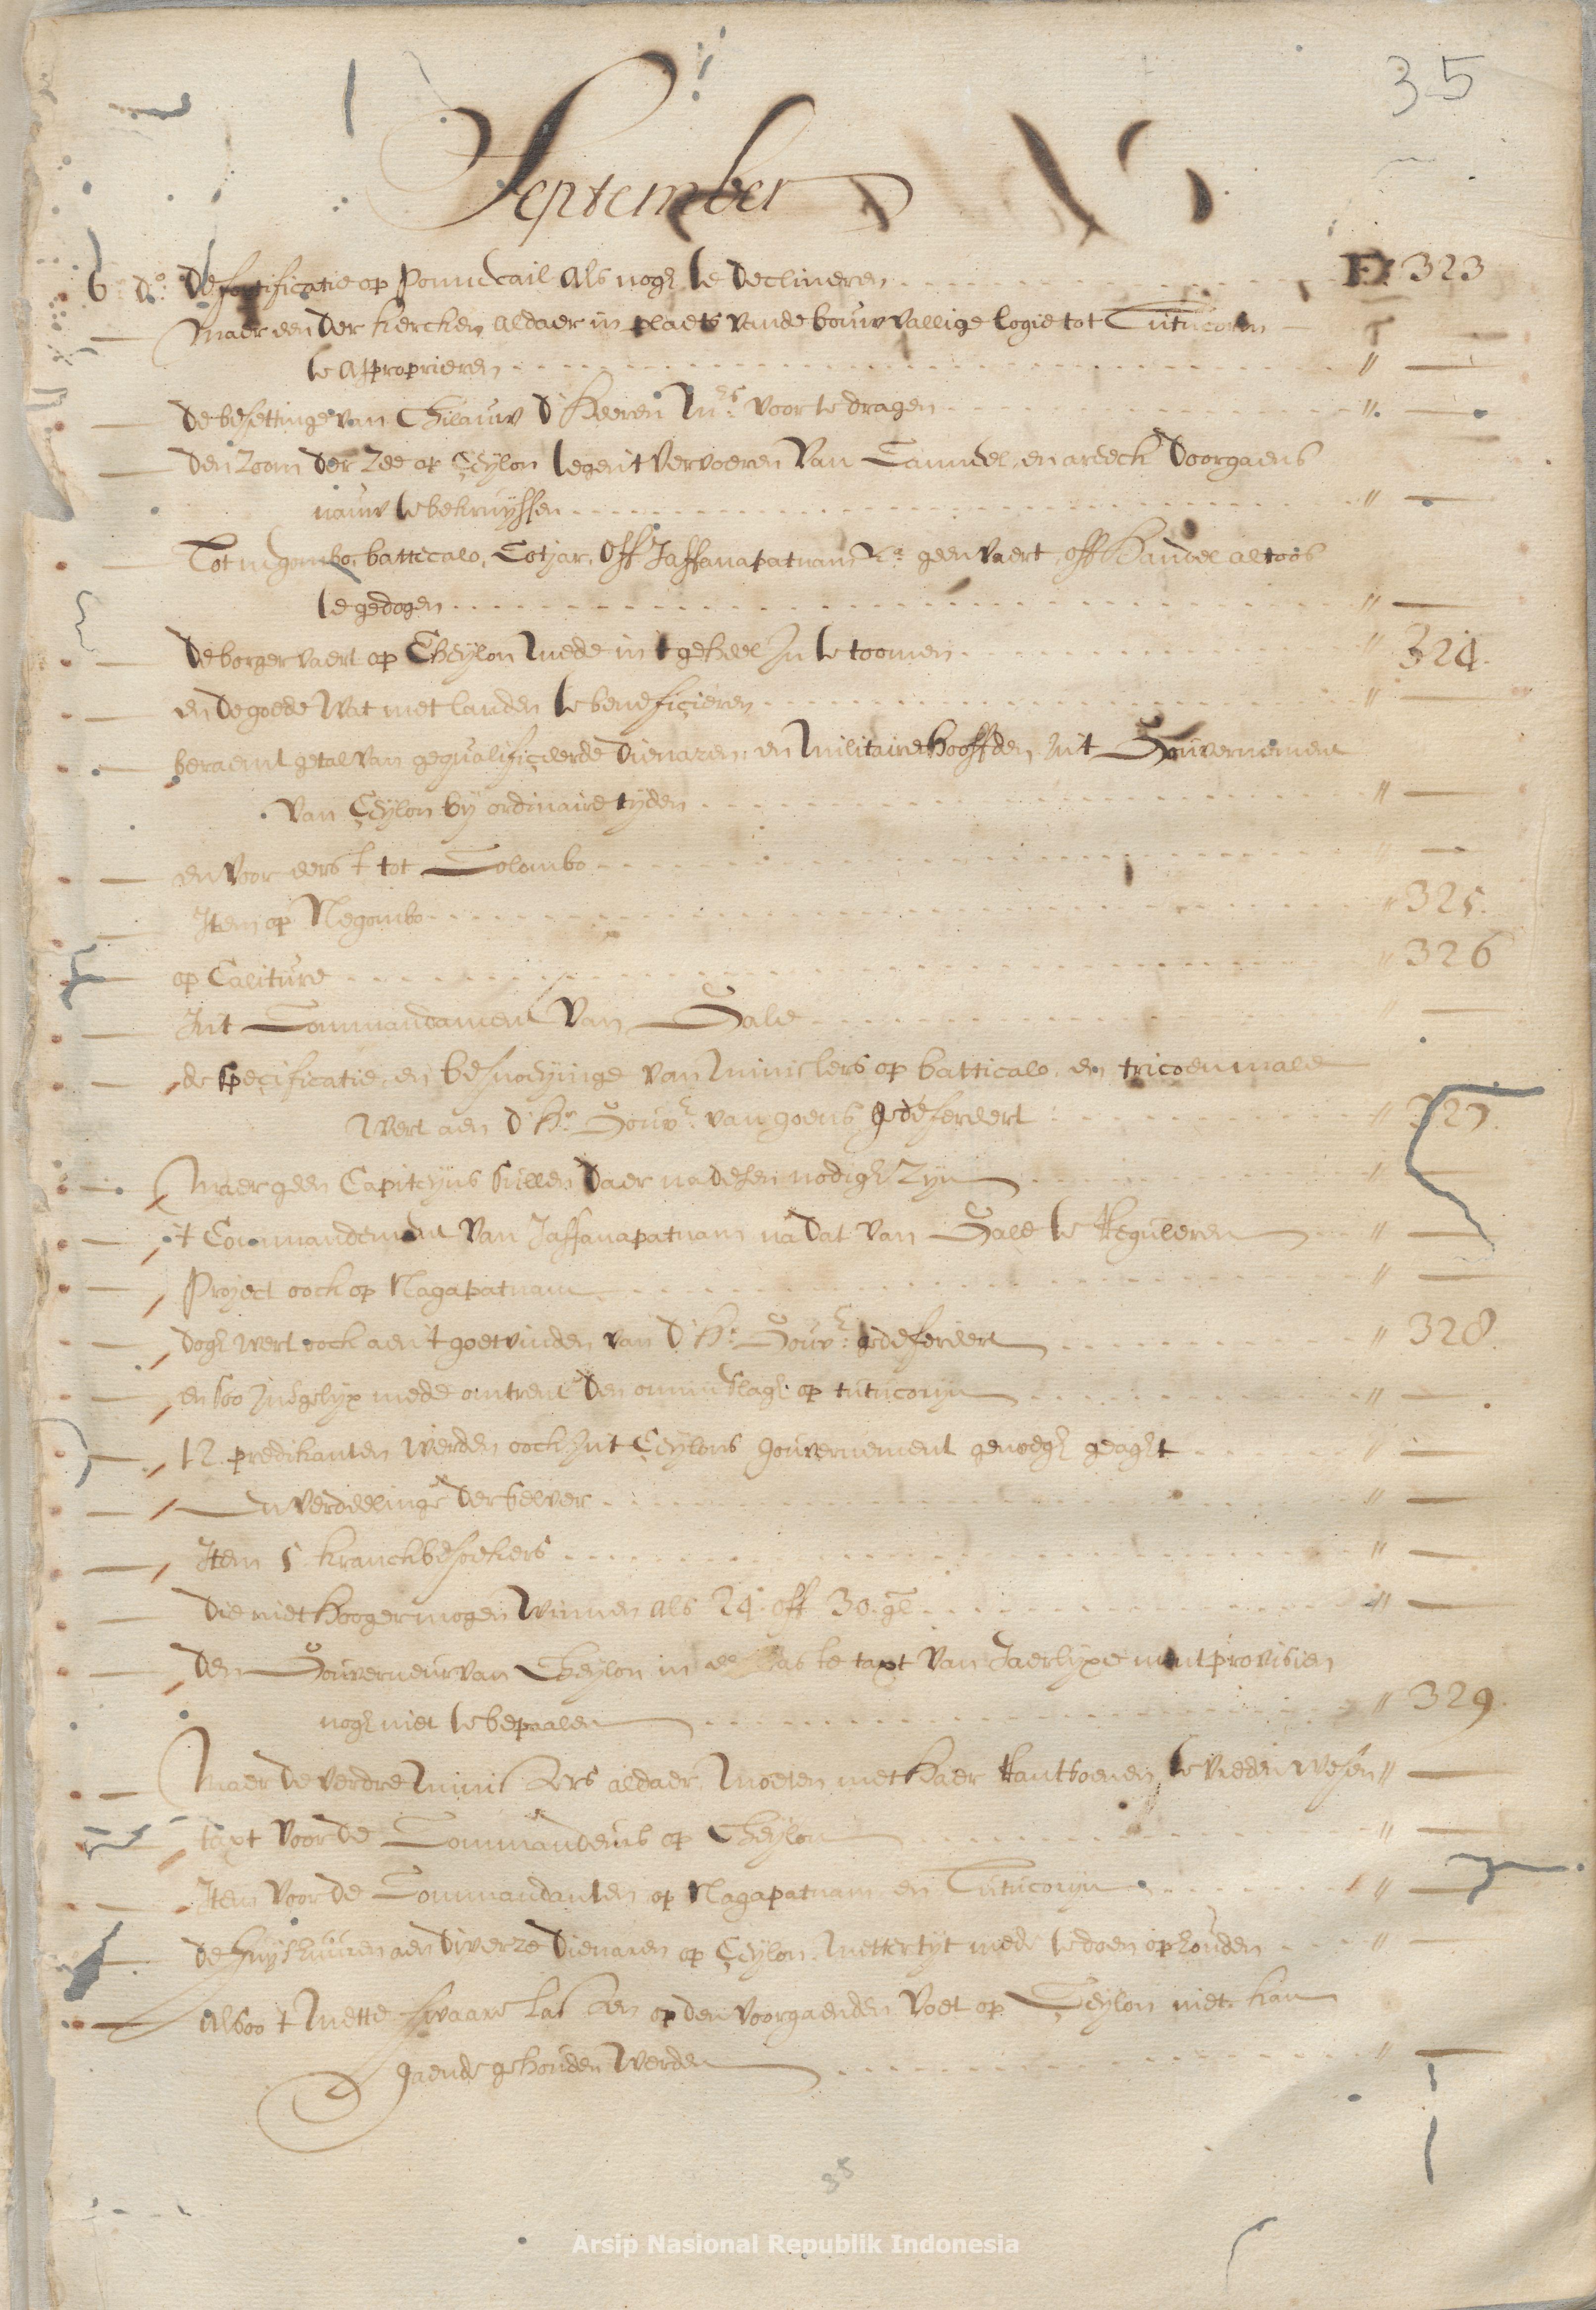 35
September
6 do. de fortificatie op Ponnecail als nogh te declineren F: 323
Maer een der kercken aldaer in plaets vande bouwvallige logie tot Tutucorin
te approprieren " —
de besettinge van Chilauw d' Heeren Mrs. voor te dragen " —
den Zoom der Zee op Ceylon tegen 't vervoeren van Canneel en areeck doorgaens
nauw te bekruyssen " —
Tot negombo, batticalo, Cotjar, off Jaffanapatnam &a. geen vaert, off handel altoos
te gedogen " —
de borger vaert op Cheylon mede in 't geheel in te toomen " 324.
en de goede Wat met landen te beneficieren " —
beraemt getal van gequalificeerde dienaren en Militaire hooffden in't Gouvernement
van Ceylon by ordinaire tyden " —
en voor eerst tot Colombo " —
Item op Negombo " 325.
op Caliture " 326
In't Commandament van Gale " —
de specificatie, en besnoeyinge van ministers op batticalo, en tricoenmale
Wert aen d' Hr. Gouvr. van goens gedefereert " 327.
Maer geen Capiteyns sullen daer na desen nodigh zyn " —
't Commandement van Jaffanapatnam na dat van Gale te Reguleren " —
Project oock op Nagapatnam " —
dogh wert oock aen 't goetvinden van d' Hr. Gouvr. gedefereert " 328.
en soo insgelyx mede omtrent den ommeslagh op tutucoryn " —
12 predikanten werden oock in't Ceylons gouvernement genoegh geaght " —
En verdeelinge derselver " —
Item 5 kranckbesoekers " —
die niet hooger mogen winnen als 24 off 30 gl " —
den Gouverneur van Cheylon in de taxt van Jaerlyxe montprovisien
nogh niet te bepaalen " 329.
Maer de verdre Ministers aldaer, Moeten met haer Rantsoenen te vreden wesen " —
taxt voor de Commandeurs op Cheylon " —
Item voor de Commandanten op Nagapatnam en Tutucoryn " —
de huyshuuren aen diverze dienaren op Ceylon, mettertyt mede te doen ophouden " —
alsoo 't mette swaare lasten op den voorgaenden voet op Ceylon niet kan
gaende gehouden werden " —
35
Arsip Nasional Republik Indonesia